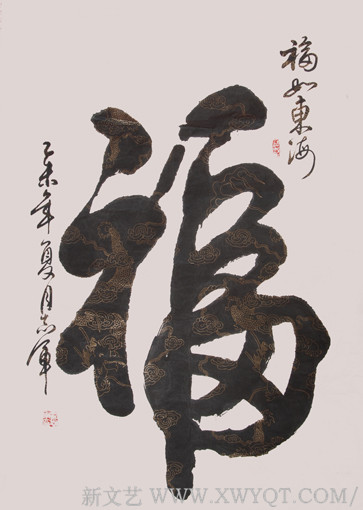 福如東海
福
乙未年夏月志軍
新文艺 / WWW.XWYQT.COM/